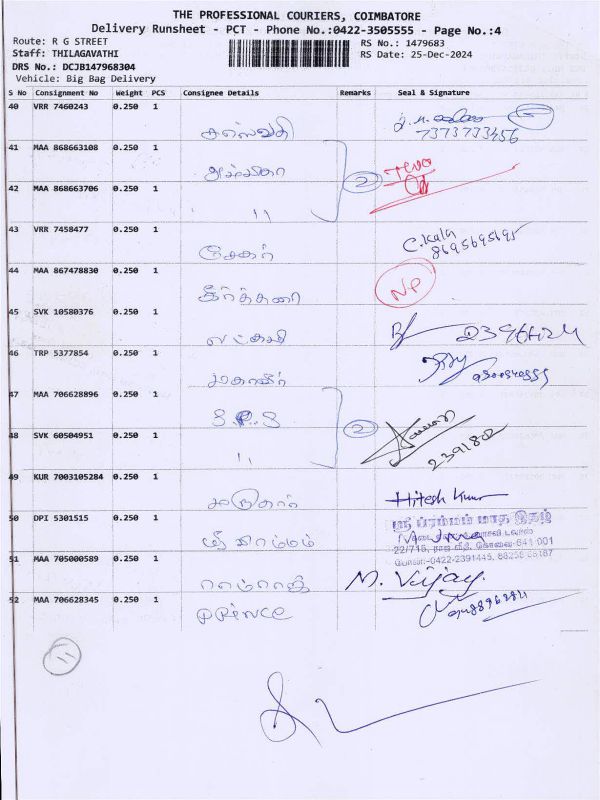 THE PROFESSIONAL COURIERS, COIMBATORE
Delivery Runsheet - PCT - Phone No.:0422-3505555 - Page No.:4
Route: R G STREET
RS No.: 1479683
Staff: THILAGAVATHI
RS Date: 25-Dec-2024
DRS No.: DCJB147968304
Vehicle: Big Bag Delivery
S No Consignment No Weight PCS Consignee Details Remarks Seal & Signature
40 VRR 7460243 0.250 1
7373733456
41 MAA 868663108 0.250 1
2
42 MAA 868663706 0.250 1
"
43 VRR 7458477 0.250 1
சேகர் C. Kala
8695695695
44 MAA 867478830 0.250 1
கீர்த்தனா NP
45 SVK 10580376 0.250 1
லட்சுமி
46 TRP 5377854 0.250 1
மகாவீர்
47 MAA 706628896 0.250 1
S.P.S
2
48 SVK 60504951 0.250 1
"
49 KUR 7003105284 0.250 1
Hitesh Kumar
50 DPI 5301515 0.250 1
ஸ்ரீ பிரம்மம்
ஸ்ரீ பிரம்மம் மாத இதழ்
22/715, ராஜ வீதி, கோவை-641 001
போன்:-0422-2391445,
51 MAA 705000589 0.250 1
ராம்ராஜ் M. Vijay.
52 MAA 706628345 0.250 1
PRINCE
11